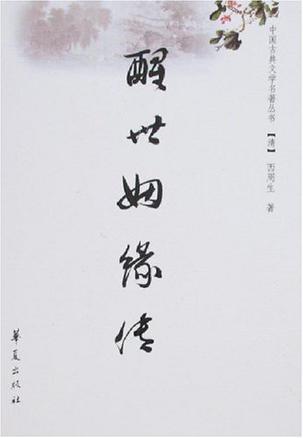 中国古典文学名著丛书
【清】 西周生 著
醒世姻缘传
华夏出版社